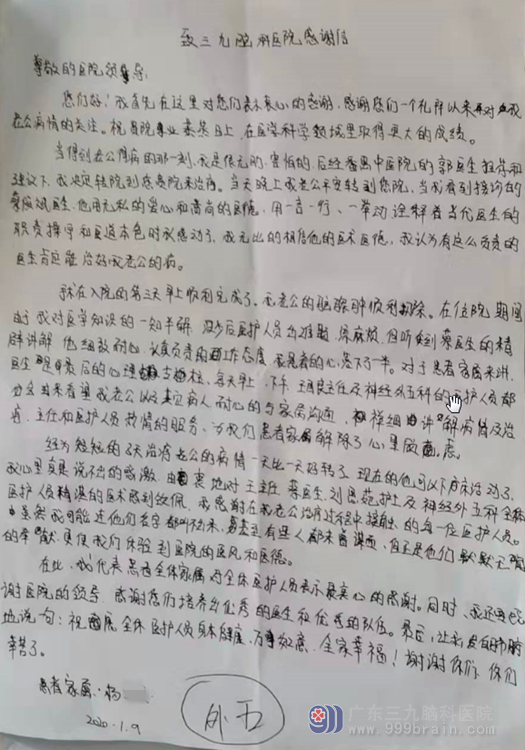 致三九脑科医院感谢信
尊敬的医院领导:
您们好!我首先在这里对您们表示衷心的感谢,感谢您们一个礼拜以来对我
老公病情的关注。祝贵院事业蒸蒸日上,在医学科学领域里取得更大的成绩。
当得到老公得病的那一刻,我是慌无的,害怕的后经番禺中医院的郭医生推荐和
建议下,我决定转院到您贵院来治疗。当天晚上我老公平安转到您院,当我看到接诊的
蔡医生,他用无私的爱心和高尚的医德,用一言一行、一举动诠释着当代医生的
职责操守和医道本色时我感动了,我无比的相信他的医术医德,我认为有这么负责的
医生肯定能治好我老公的病。
就在入院的第三天早上顺利完成了。我老公的脑瘤顺利切除。在住院期间
由于我对医学知识的一知半解,没少给医护人员出难题,添麻烦,但听到蔡医生的精
辟讲解,他细致耐心、认真负责的工作态度,我悬着的心落下了一半。对于患者家属来讲,
医生是最后的心理支柱,每天早上、下午王主任及神经外五科的医护人员都
会过来看望我老公以及其它病人耐心的与家属沟通,详细的讲解病情及治
、主任和医护人员热情的服务,为我们患者家属解除了心里顾虑。
经过短短的7天治疗老公的病情一天比一天好转了,现在的他可以下床活动了,
我心里真是说不出的感激,由衷地对王主任、蔡医生、刘医护士及神经外五科全体
医护人员精湛的医术感到敬佩,我感谢在我老公治疗过程中接触的每一位医护人员。
虽然我可能连他们名字都叫不出来,甚至有些人都未曾谋面,但正是他们默默无闻
的奉献,真使我们体验到医院的医风和医德。
在此,我代表患者全体家属对全体医护人员表示最衷心的感谢。同时,我还要感
谢医院的领导,感谢您们培养出优秀的医生和优秀的队伍。最后,让我发自肺腑
地说句:祝医院全体医护人员身体健康,万事如意,全家幸福!谢谢你们,你们
辛苦了。
患者家属:杨
2020.1.9
外五
广东三九脑科医院
www.999brain.com